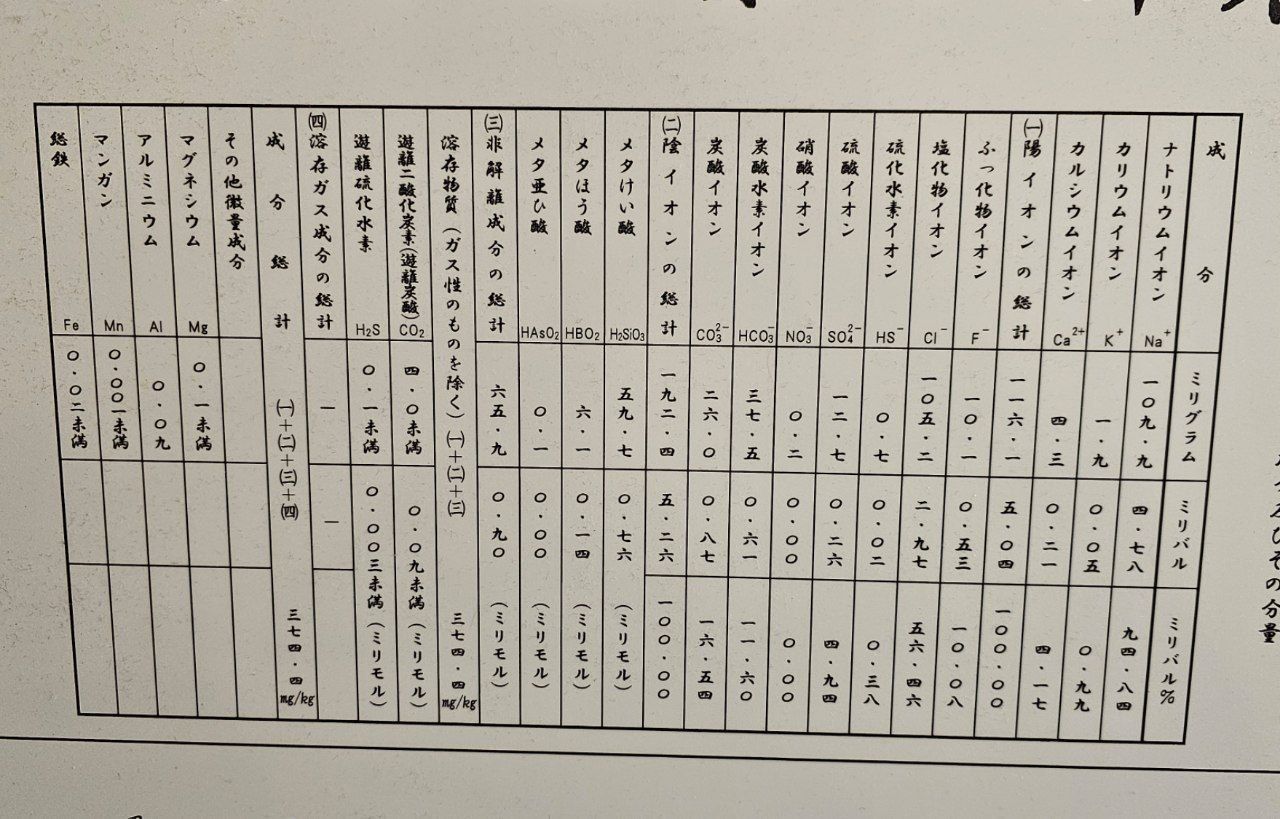 成分 ミリグラム ミリバル ミリバル%
ナトリウムイオン Na⁺ 一〇九・九 四・七八 九四・八四
カリウムイオン K⁺ 一・九 〇・〇五 〇・九九
カルシウムイオン Ca²⁺ 四・三 〇・二一 四・一七
㈠陽イオンの総計 一一六・一 五・〇四 一〇〇・〇〇
ふっ化物イオン F⁻ 一〇・一 〇・五三 一〇・〇八
塩化物イオン Cl⁻ 一〇五・二 二・九七 五六・四六
硫化水素イオン HS⁻ 〇・七 〇・〇二 〇・三八
硫酸イオン SO₄²⁻ 一二・七 〇・二六 四・九四
硝酸イオン NO₃⁻ 〇・二 〇・〇〇 〇・〇〇
炭酸水素イオン HCO₃⁻ 三七・五 〇・六一 一一・六〇
炭酸イオン CO₃²⁻ 二六・〇 〇・八七 一六・五四
㈡陰イオンの総計 一九二・四 五・二六 一〇〇・〇〇
メタけい酸 H₂SiO₃ 五九・七 〇・七六 (ミリモル)
メタほう酸 HBO₂ 六・一 〇・一四 (ミリモル)
メタ亜ひ酸 HAsO₂ 〇・一 〇・〇〇 (ミリモル)
㈢非解離成分の総計 六五・九 〇・九〇 (ミリモル)
溶存物質(ガス性のものを除く)㈠+㈡+㈢ 三七四・四 mg/kg
遊離二酸化炭素(遊離炭酸) CO₂ 四・〇未満 〇・〇九未満(ミリモル)
遊離硫化水素 H₂S 〇・一未満 〇・〇〇三未満(ミリモル)
㈣溶存ガス成分の総計 — —
成分総計 ㈠+㈡+㈢+㈣ 三七四・四 mg/kg
その他微量成分
マグネシウム Mg 〇・一未満
アルミニウム Al 〇・〇九
マンガン Mn 〇・〇〇一未満
総鉄 Fe 〇・〇二未満